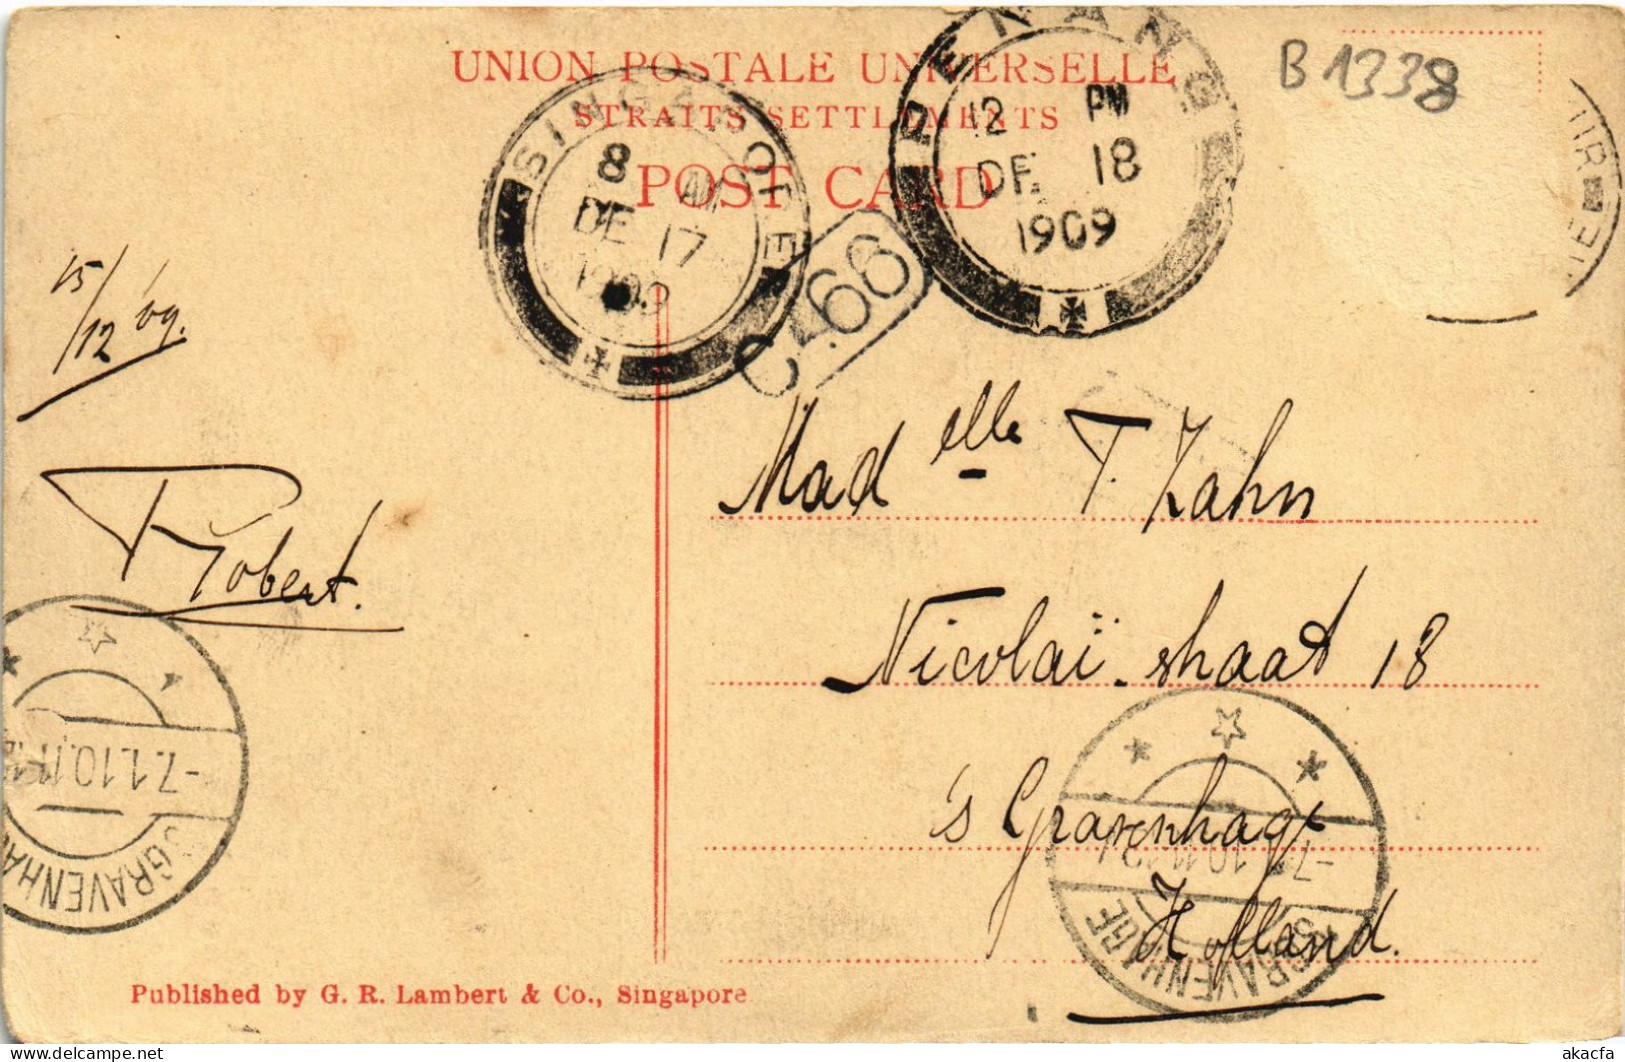 UNION POSTALE UNIVERSELLE
STRAITS SETTLEMENTS
POST CARD
B 1338
SINGAPORE
8 AM
DE 17
1909
PENANG
12 PM
DE 18
1909
C 66
15/12 '09.
Robert.
Madelle T. Zahn
Nicolaï-straat 18
's Gravenhage
Holland.
-7.1.10.11-12
'S GRAVENHA
-7.1.10.11-12
'S GRAVENHAGE
Published by G. R. Lambert & Co., Singapore
akacfa
delcampe.net